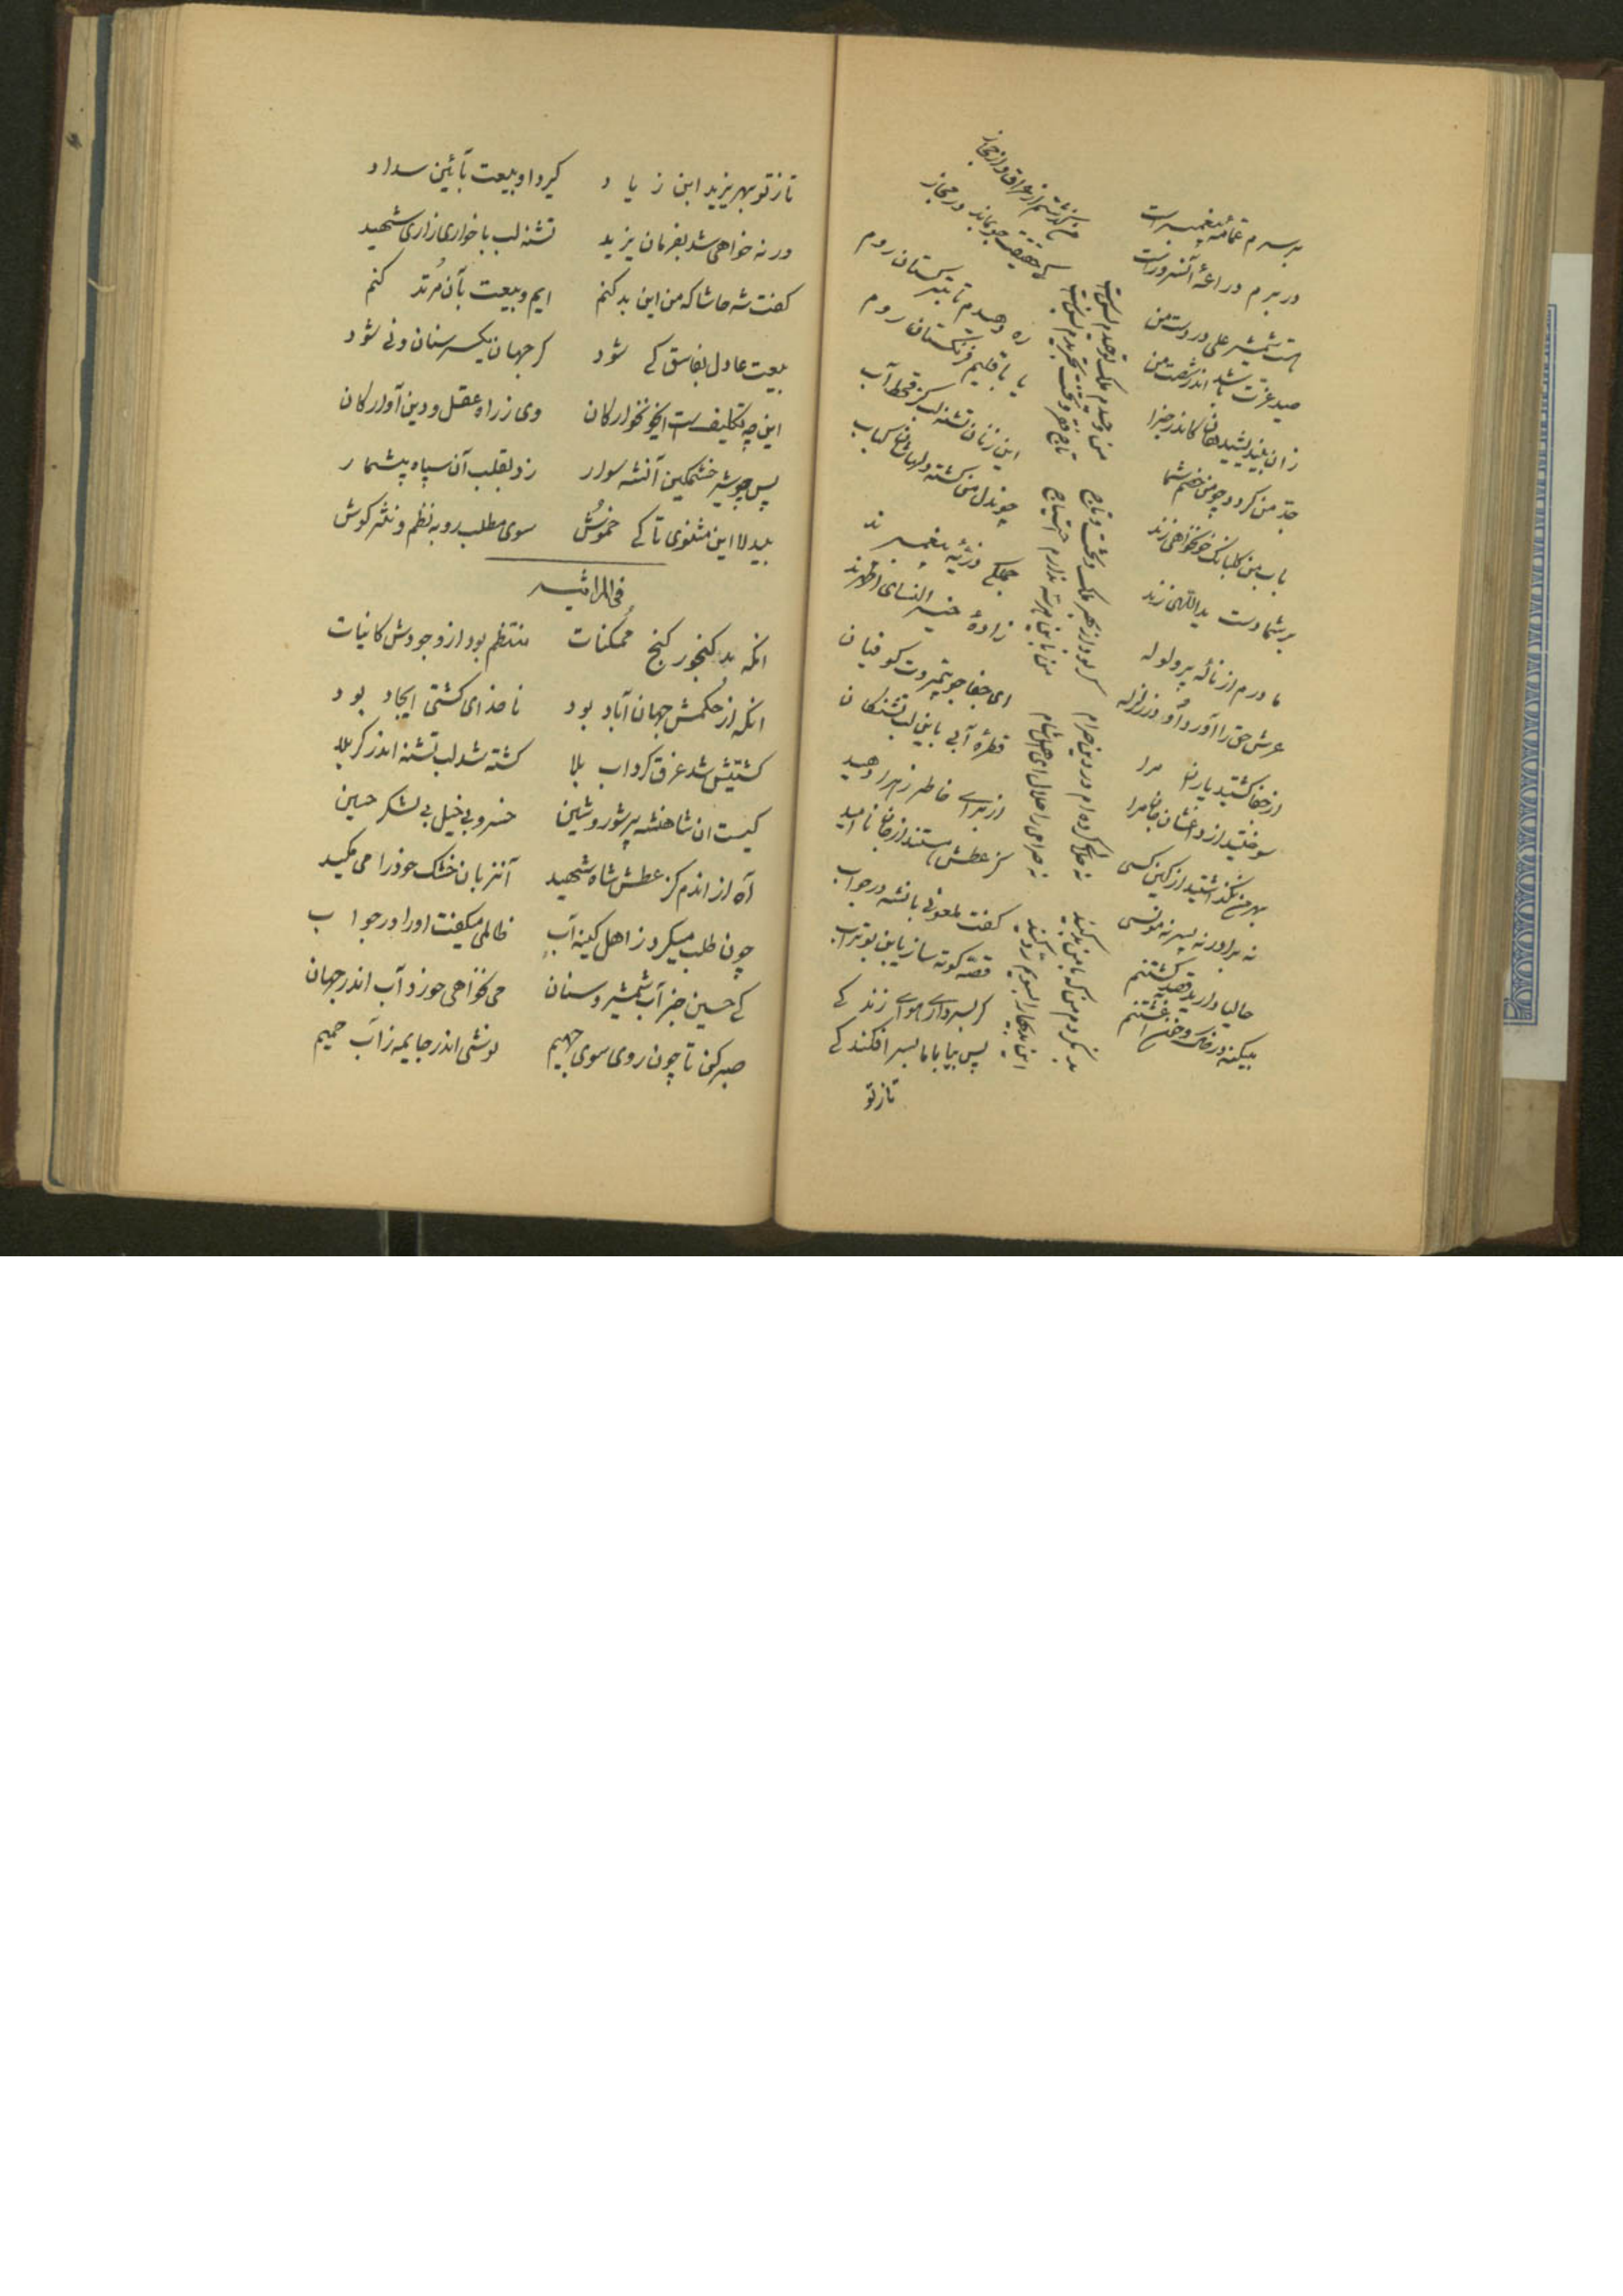 بر سرم عمامهٔ پیغمبر است
در برم دراعهٔ آنسرور است
هست شمشیر علی در دست من
صید عزت باشد اندر شصت من
جد من کردد چو من خصم شما
بر شما دست یداللهی زند
مادرم از نالهٔ پر ولوله
عرش حق را آورد در زلزله
از جفا کشتید یاران مرا
سوختید از داغشان جان مرا
بهر من نکذاشتید از کین کسی
نه برادر نه پسر نه مونسی
حالیا دارید قصد کشتنم
بیکنه در خاک و خون آغشتنم
من وحیدم ملک توحیدم بس است
تاج فقر و تخت تجریدم بس است
سر بود از بهر ملک و تخت و تاج
من باین هر سه ندارم احتیاج
نه حلالی کرده‌ام در دین حرام
نه حرامی را حلال ای اهل شام
بد نکردم من که با من بد کنید
این بدیها را بسویم رد کنید
من گذشتم از عراق و از حجاز
کی حقیقت جو بماند در مجاز
ره دهیدم تا بترکستان روم
یا باقلیم فرنکستان روم
این زنان تشنه لب کز قحط آب
چون دل من کشته دلهاشان کباب
جملکی ذریهٔ پیغمبرند
زادهٔ خیر النسای اطهرند
ای جفا جو بیمروت کوفیان
قطرهٔ آبی باین لب تشنکان
از برای خاطر زهرا دهید
کز عطش هستند از جان ناامید
کفت ملعونی بانشه در جواب
قصه کوته ساز یابن بوتراب
کر بسر داری هوای زندکی
پس بیا با ما بسر افکندکی
تا ز تو
تا ز تو بهر یزید ابن زیاد    کیرد او بیعت بآئین سداد
ورنه خواهی شد بفرمان یزید    تشنه لب با خواری زاری شهید
کفت شه حاشا که من این بد کنم    ایم و بیعت بآن مرتد کنم
بیعت عادل بفاسق کی شود    کر جهان یکسر سنان و نی شود
این چه تکلیف است ایخونخوارکان    وی ز راه عقل و دین آوارکان
پس چو شیر خشمکین آنشه سوار    زد بقلب آن سپاه بیشمار
بیدلا این مثنوی تا کی خموش    سوی مطلب رو به نظم و نثر کوش
فی المراثیه
انکه بد کنجور کنج ممکنات    منتظم بود از وجودش کاینات
انکه از حکمش جهان آباد بود    ناخدای کشتی ایجاد بود
کشتیش شد غرق کرداب بلا    کشته شد لب تشنه اندر کربلا
کیست ان شاهنشه پر شور و شین    خسرو بی خیل بی لشکر حسین
آه از اندم کز عطش شاه شهید    آنزبان خشک خود را می مکید
چون طلب میکرد ز اهل کینه آب    ظالمی میکفت او را در جواب
کی حسین جز آب شمشیر و سنان    می نخواهی خورد آب اندر جهان
صبر کن تا چون روی سوی جهیم    نوشی اندر جایمه ز آب حمیم